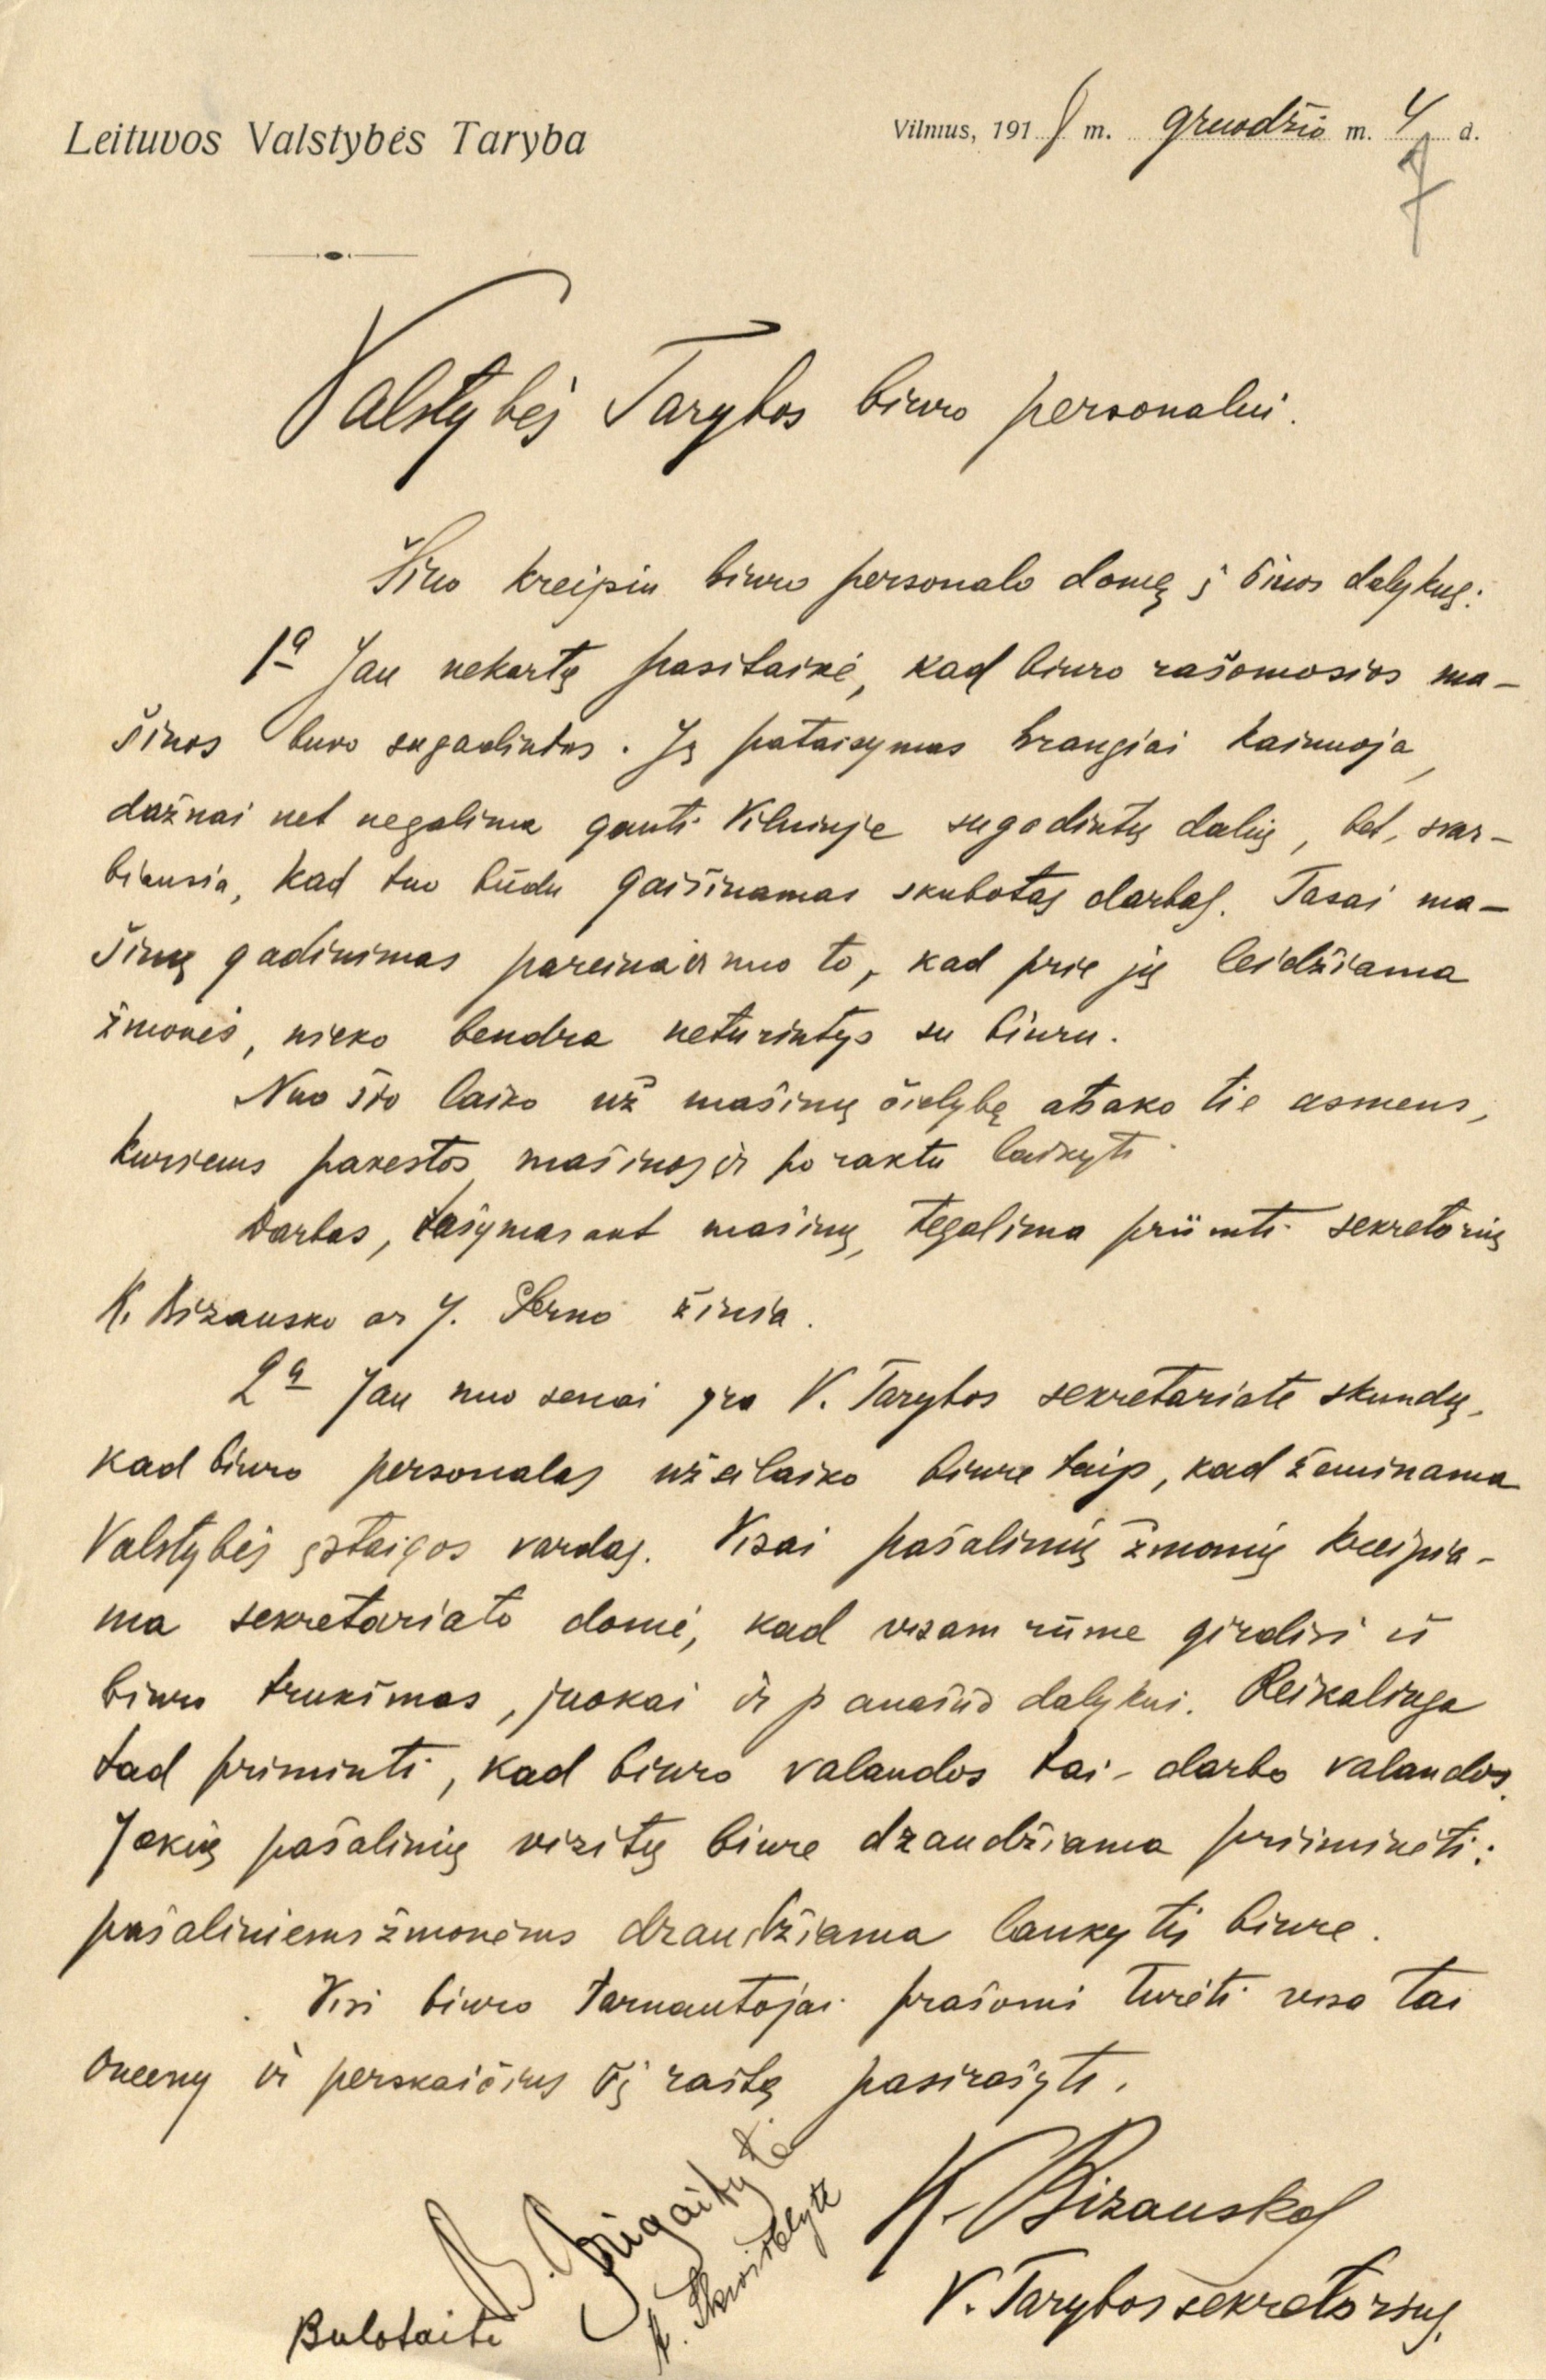 Leituvos Valstybės Taryba
Vilnius, 1918 m. gruodžio m. 4 d.
7
Valstybės Tarybos biuro personalui.
Šiuo kreipiu biuro personalo domę į šiuos dalykus:
1a Jau nekartą pasitaikė, kad biuro rašomosios ma-
šinos buvo sugadintos. Jų pataisymas brangiai kainuoja,
dažnai net negalima gauti Vilniuje sugadintų dalių, bet, svar-
biausia, kad tuo būdu gaišinamas skubotas darbas. Tasai ma-
šinų gadinimas pareina ir nuo to, kad prie jų leidžiama
žmonės, nieko bendra neturintys su biuru.
Nuo šio laiko už mašinų čielybę atsako tie asmens,
kuriems pavestos mašinos ir po raktu laikyti.
Darbas, rašymas ant mašinų, tegalima priimti sekretorių
K. Bizausko ar J. Šerno žinia.
2a Jau nuo senai yra V. Tarybos sekretariate skundų,
kad biuro personalas užsilaiko biure taip, kad žeminama
Valstybės įstaigos vardas. Visai pašalinių žmonių kreipia-
ma sekretariato domė, kad visam rūme girdisi iš
biuro trukšmas, juokai ir panašūs dalykai. Reikalinga
tad priminti, kad biuro valandos tai - darbo valandos.
Jokių pašalinių vizitų biure draudžiama priiminėti:
pašaliniems žmonėms draudžiama lankytis biure.
Visi biuro tarnautojai prašomi turėti visa tai
omeny ir perskaičius šį raštą pasirašyti.
K. Bizauskas
V. Tarybos sekretorius.
Bulotaitė